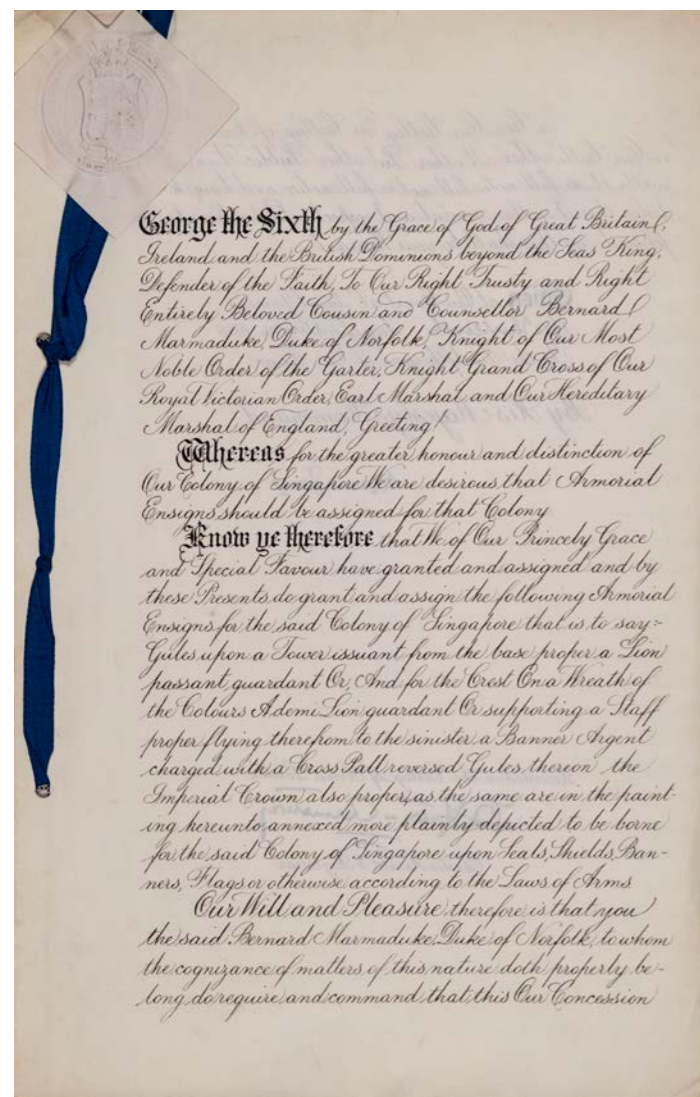 George the Sixth by the Grace of God of Great Britain,
Ireland and the British Dominions beyond the Seas King,
Defender of the Faith, To Our Right Trusty and Right
Entirely Beloved Cousin and Counsellor Bernard
Marmaduke, Duke of Norfolk, Knight of Our Most
Noble Order of the Garter, Knight Grand Cross of Our
Royal Victorian Order, Earl Marshal and Our Hereditary
Marshal of England, Greeting!
Whereas for the greater honour and distinction of
Our Colony of Singapore We are desirous that Armorial
Ensigns should be assigned for that Colony
Know ye therefore that We of Our Princely Grace
and Special Favour have granted and assigned and by
these Presents do grant and assign the following Armorial
Ensigns for the said Colony of Singapore that is to say:-
Gules upon a Tower issuant from the base proper a Lion
passant guardant Or, And for the Crest On a Wreath of
the Colours A demi Lion guardant Or supporting a Staff
proper flying therefrom to the sinister a Banner Argent
charged with a Cross Pall reversed Gules thereon the
Imperial Crown also proper, as the same are in the paint-
ing hereunto annexed more plainly depicted to be borne
for the said Colony of Singapore upon Seals, Shields, Ban-
ners, Flags or otherwise according to the Laws of Arms
Our Will and Pleasure therefore is that you
the said Bernard Marmaduke, Duke of Norfolk, to whom
the cognizance of matters of this nature doth properly be-
long do require and command that this Our Concession